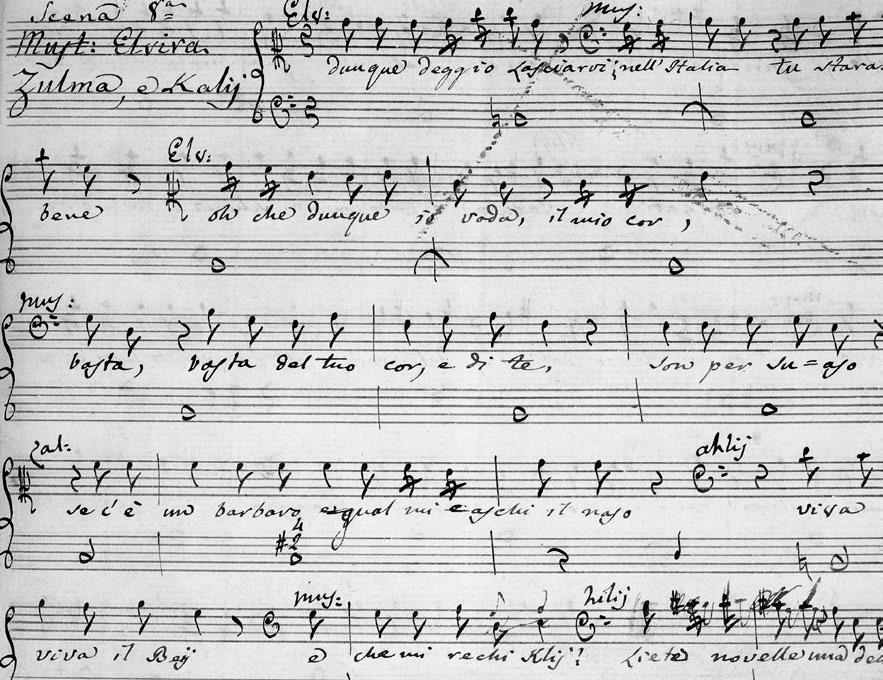 Scena 8ª
Must: Elvira
Zulma, e Kalij
Elv: Mus:
dunque deggio Lasciarvi; nell'Italia tu stara
Elv:
bene oh che dunque io vada, il mio cor,
Mus:
basta, basta del tuo cor, e di te, son per su=aso
Zul:
se c'è un barbaro egual mi caschi il naso
viva
4
2
viva il Beij e che mi rechi Klij? Liete novelle una del
mus: